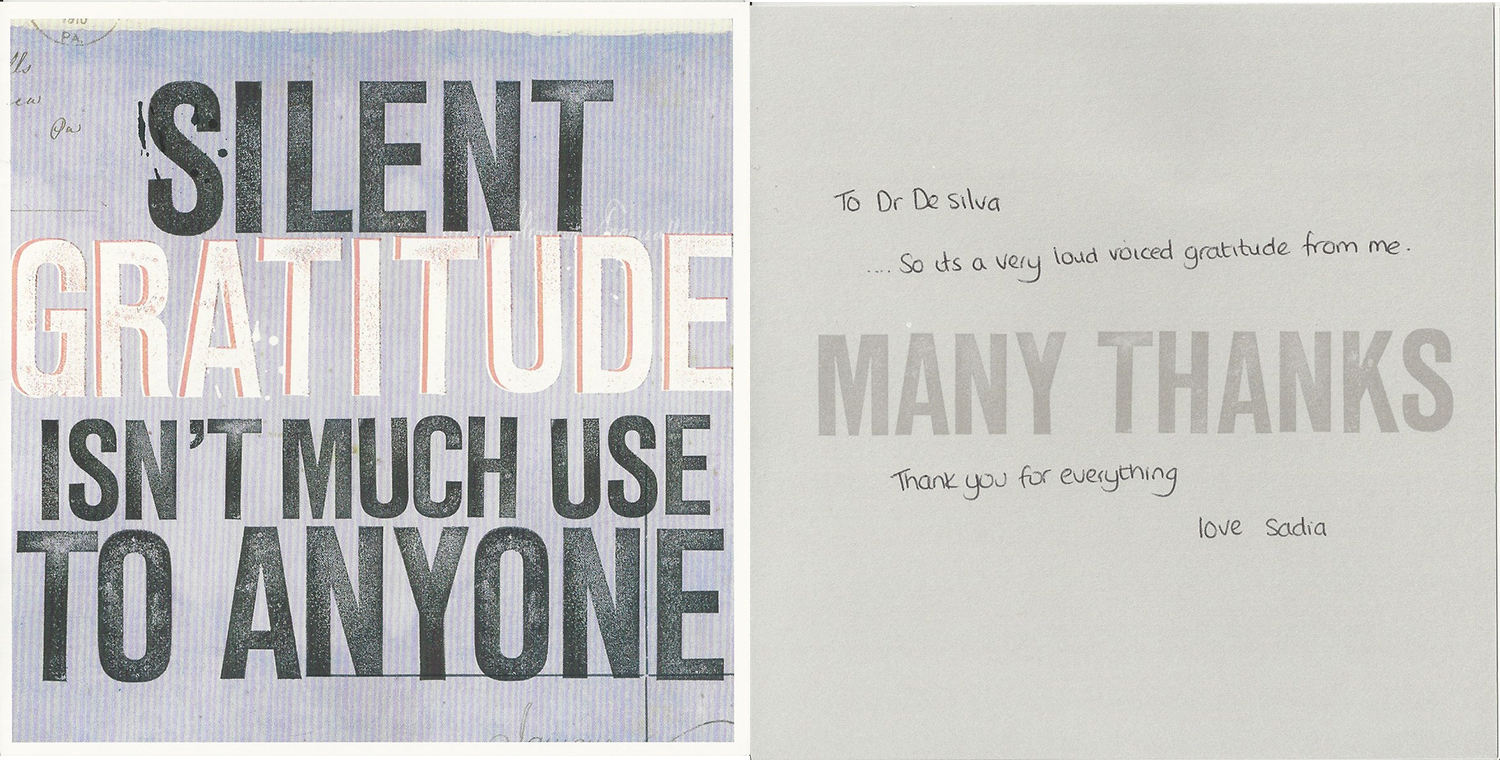 1910
PA.
lls
ew
Pa
SILENT
GRATITUDE
ISN'T MUCH USE
TO ANYONE
To Dr De silva
.... So its a very loud voiced gratitude from me.
MANY THANKS
Thank you for everything
love sadia